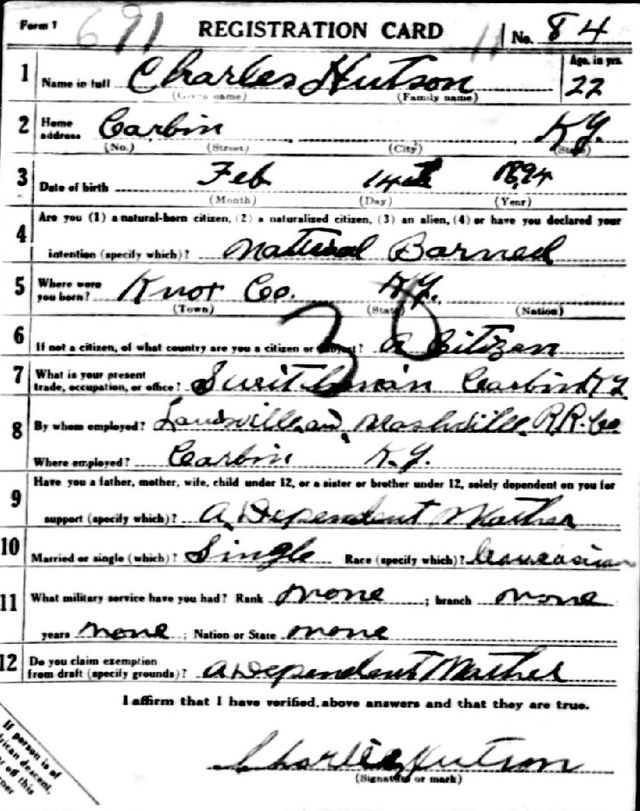 Form 1 691 REGISTRATION CARD 11 No. 84
1 Name in full Charles Hutson Age, in yrs. 22
(Given name) (Family name)
2 Home address Carbin Ky.
(No.) (Street) (City) (State)
3 Date of birth Feb 14th 1894
(Month) (Day) (Year)
4 Are you (1) a natural-born citizen, (2) a naturalized citizen, (3) an alien, (4) or have you declared your
intention (specify which)? Natural Barned
5 Where were you born? Knox Co. Ky.
(Town) (State) (Nation)
38
6 If not a citizen, of what country are you a citizen or subject? A Citizan
7 What is your present trade, occupation, or office? Switchman Carbin Ky
8 By whom employed? Louisville and Nashville R.R. Co
Where employed? Carbin Ky.
9 Have you a father, mother, wife, child under 12, or a sister or brother under 12, solely dependent on you for
support (specify which)? A Dependent Mother
10 Married or single (which)? Single Race (specify which)? Caucasian
11 What military service have you had? Rank None ; branch None
years None ; Nation or State None
12 Do you claim exemption from draft (specify grounds)? A Dependent Mother
I affirm that I have verified above answers and that they are true.
Charlie Hutson
(Signature or mark)
If person is of
African descent,
off this